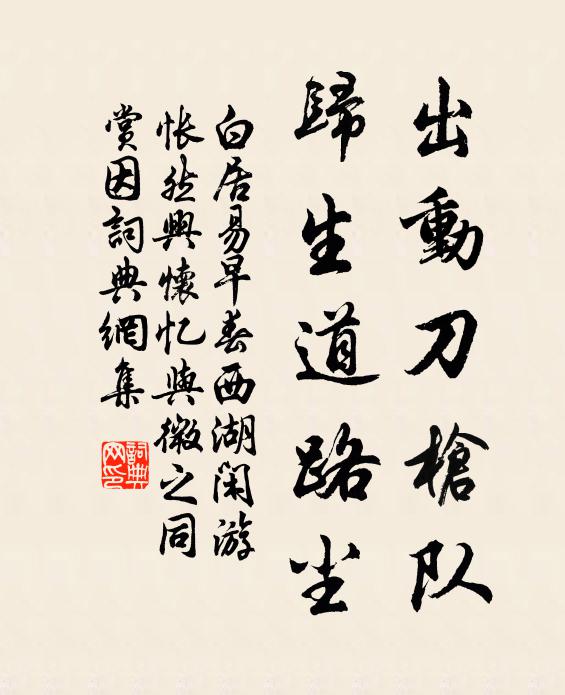 出動刀槍队
歸生道路尘
白居易早春西湖闲游
怅然興懷忆與微之同
赏因詞典網集
詞典网印